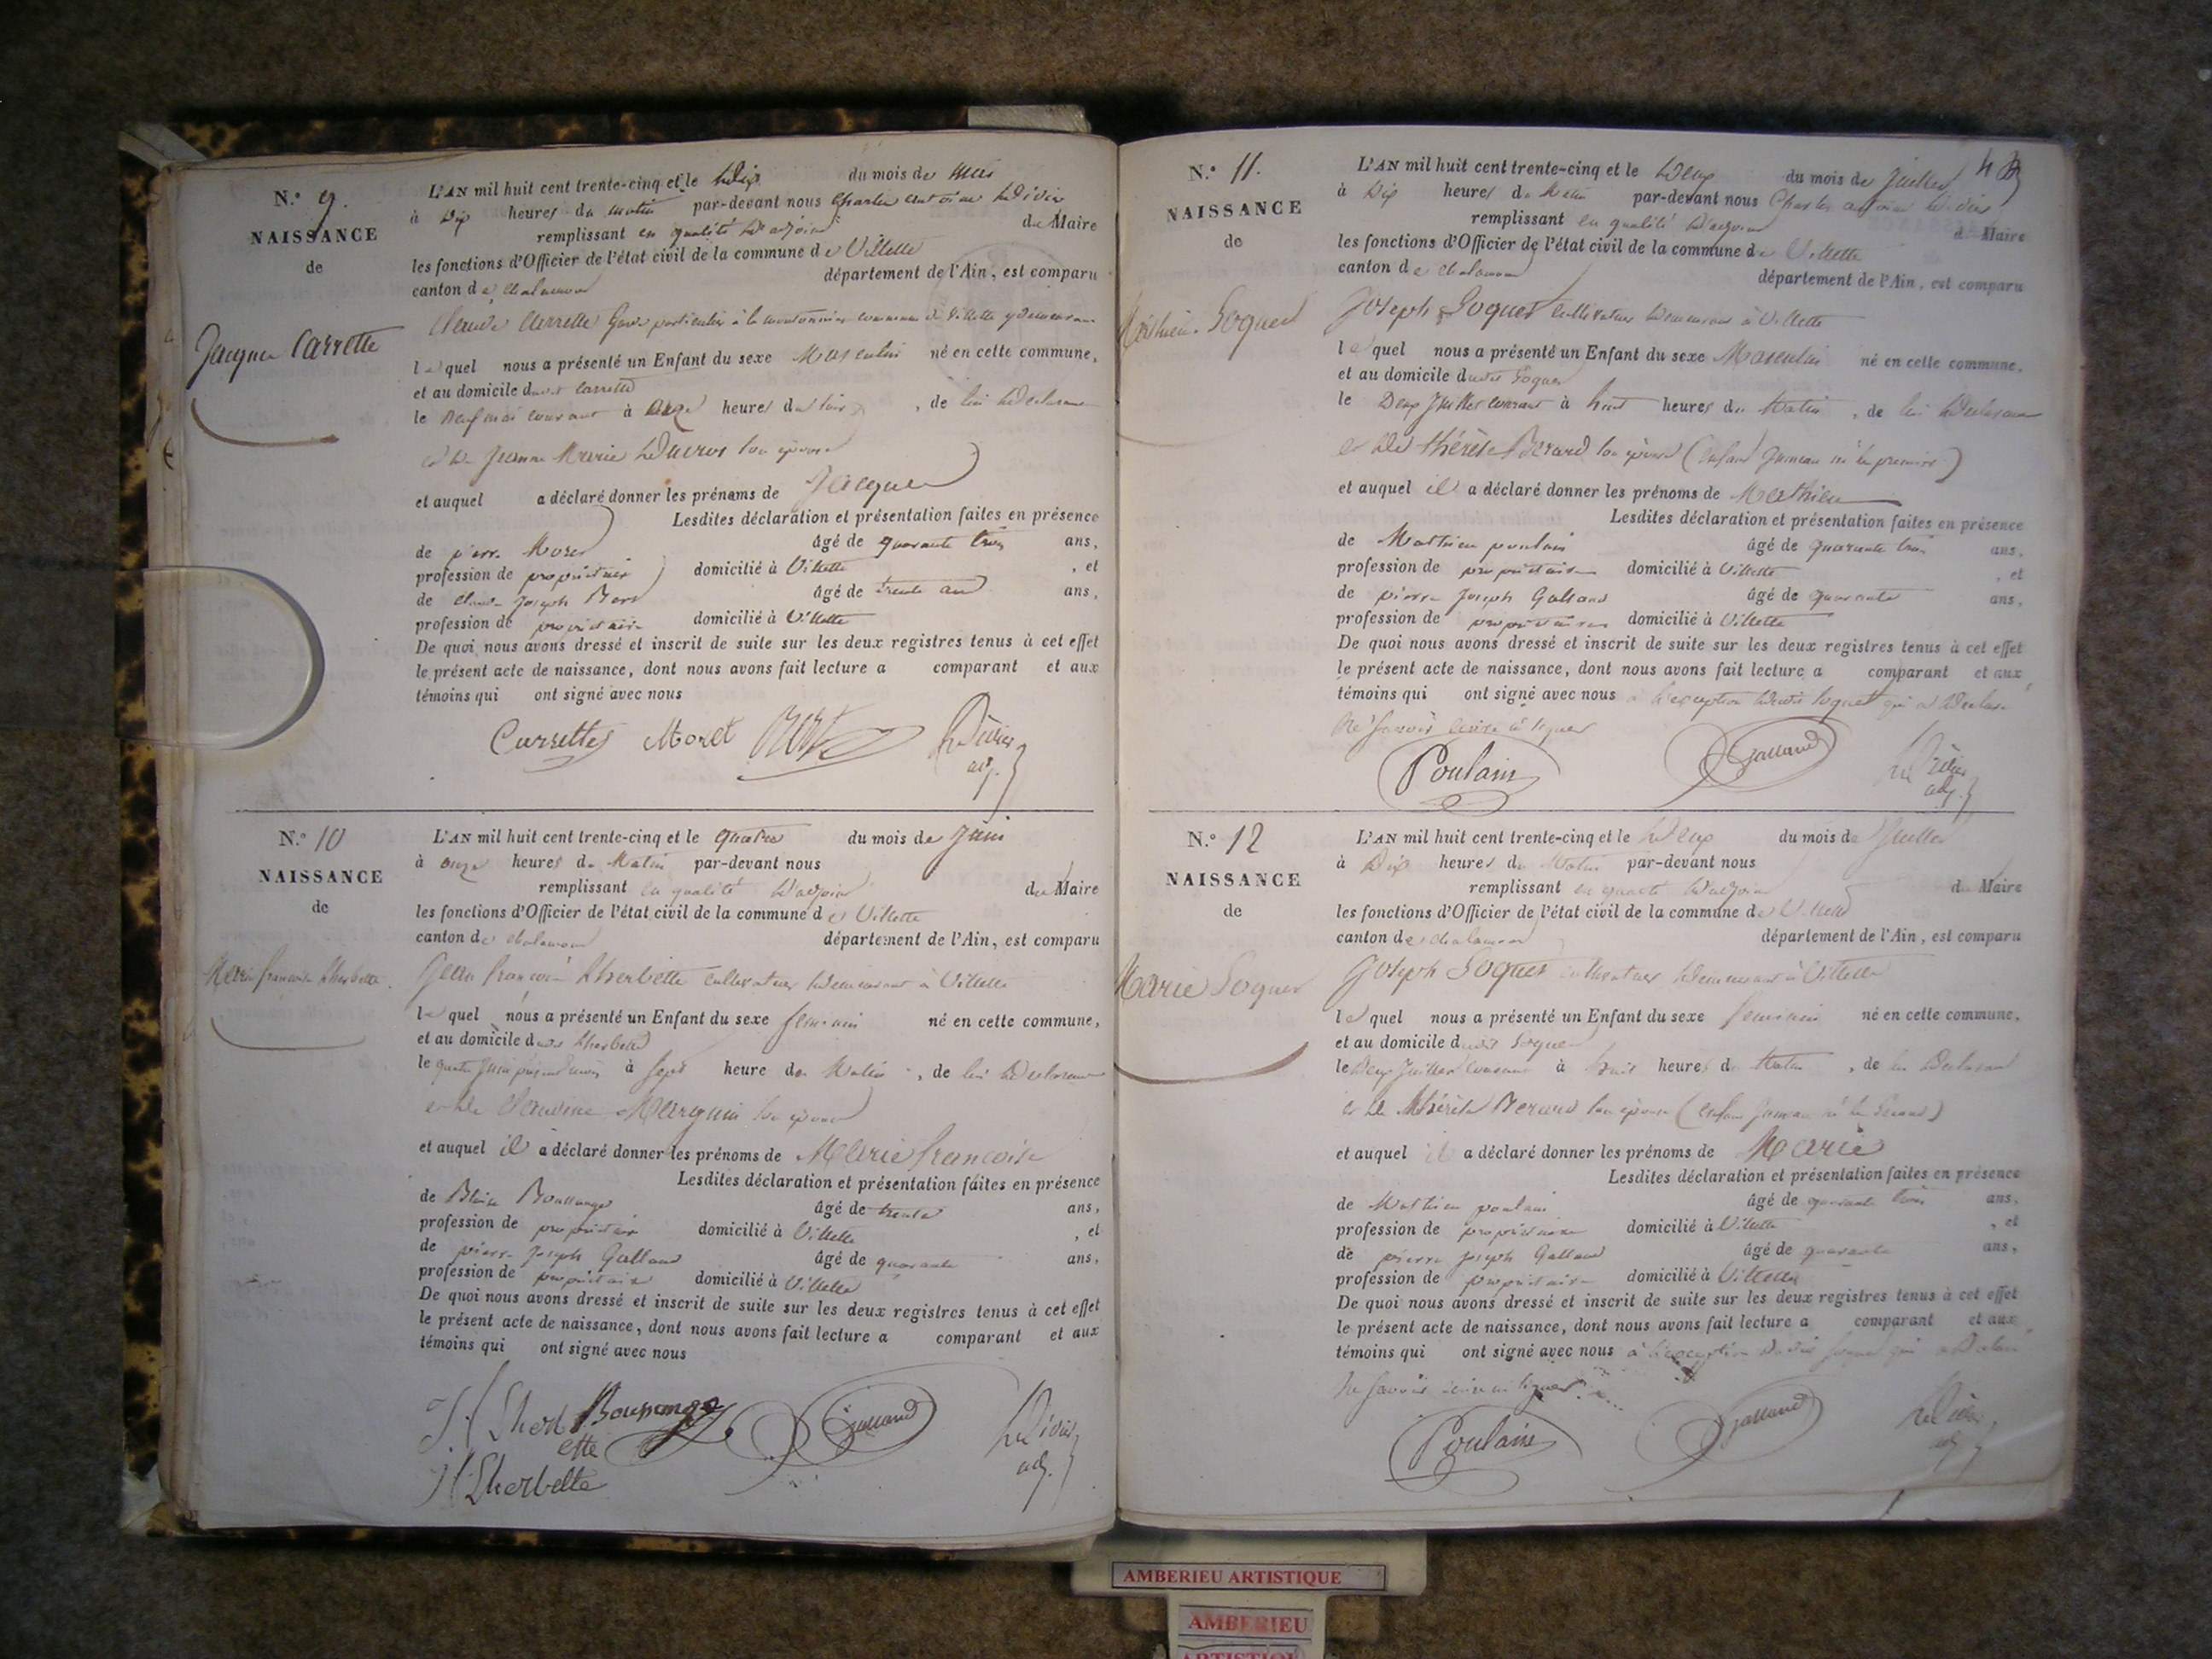 N.º 9.
NAISSANCE
de
Jacques Carrette
L'AN mil huit cent trente-cinq et le dix du mois de mai
à dix heures du matin par-devant nous Charles antoine
remplissant en qualité d'adjoint du Maire
les fonctions d'Officier de l'état civil de la commune de Villette
canton de chalamont département de l'Ain, est comparu
Claude Carrette Garde particulier à la commune de Villette y demeurant
lequel nous a présenté un Enfant du sexe Masculin né en cette commune,
et au domicile dudit Carrette
le neuf mai courant à onze heures du soir, de lui déclarant
et de Jeanne Marie Ducros son épouse
et auquel a déclaré donner les prénoms de Jacques
Lesdites déclaration et présentation faites en présence
de pierre Moret âgé de quarante trois ans,
profession de propriétaire domicilié à Villette, et
de claude Joseph âgé de trente ans,
profession de propriétaire domicilié à Villette
De quoi nous avons dressé et inscrit de suite sur les deux registres tenus à cet effet
le présent acte de naissance, dont nous avons fait lecture a comparant et aux
témoins qui ont signé avec nous
Carrette Moret
adj.
N.º 10
NAISSANCE
de
Marie francoise Lherbette.
L'AN mil huit cent trente-cinq et le quatre du mois de juin
à onze heures du Matin par-devant nous
remplissant en qualité d'adjoint du Maire
les fonctions d'Officier de l'état civil de la commune de Villette
canton de chalamont département de l'Ain, est comparu
Jean francois Lherbette cultivateur demeurant à Villette
lequel nous a présenté un Enfant du sexe feminin né en cette commune,
et au domicile dudit Lherbette
le quatre Juin à sept heure du Matin, de lui déclarant
et de Claudine Marguin son épouse
et auquel il a déclaré donner les prénoms de Marie francoise
Lesdites déclaration et présentation faites en présence
de Blaise âgé de trente ans,
profession de propriétaire domicilié à Villette, et
de pierre Joseph Galland âgé de quarante ans,
profession de propriétaire domicilié à Villette
De quoi nous avons dressé et inscrit de suite sur les deux registres tenus à cet effet
le présent acte de naissance, dont nous avons fait lecture a comparant et aux
témoins qui ont signé avec nous
Lherbette Galland
adj.
Lherbette
N.º 11.
NAISSANCE
de
Mathieu Soquet
L'AN mil huit cent trente-cinq et le deux du mois de juillet
à dix heures du Matin par-devant nous Charles antoine
remplissant en qualité d'adjoint du Maire
les fonctions d'Officier de l'état civil de la commune de Villette
canton de chalamont département de l'Ain, est comparu
Joseph Soquet cultivateur demeurant à Villette
lequel nous a présenté un Enfant du sexe Masculin né en cette commune,
et au domicile dudit Soquet
le Deux Juillet courant à huit heures du Matin, de lui déclarant
et de thérèse Berard son épouse (enfant Jumeau né le premier)
et auquel il a déclaré donner les prénoms de Mathieu
Lesdites déclaration et présentation faites en présence
de Mathieu poulain âgé de quarante trois ans,
profession de propriétaire domicilié à Villette, et
de pierre Joseph Galland âgé de quarante ans,
profession de propriétaire domicilié à Villette
De quoi nous avons dressé et inscrit de suite sur les deux registres tenus à cet effet
le présent acte de naissance, dont nous avons fait lecture a comparant et aux
témoins qui ont signé avec nous à l'exception dudit Soquet qui a déclaré
ne savoir écrire ni signer
Poulain Galland
adj.
N.º 12
NAISSANCE
de
Marie Soquet
L'AN mil huit cent trente-cinq et le deux du mois de Juillet
à dix heures du Matin par-devant nous
remplissant en qualité d'adjoint du Maire
les fonctions d'Officier de l'état civil de la commune de Villette
canton de chalamont département de l'Ain, est comparu
Joseph Soquet cultivateur demeurant à Villette
lequel nous a présenté un Enfant du sexe feminin né en cette commune,
et au domicile dudit Soquet
le Deux Juillet courant à huit heures du Matin, de lui déclarant
et de thérèse Berard son épouse (enfant Jumeau né le Second)
et auquel il a déclaré donner les prénoms de Marie
Lesdites déclaration et présentation faites en présence
de Mathieu poulain âgé de quarante trois ans,
profession de propriétaire domicilié à Villette, et
de pierre Joseph Galland âgé de quarante ans,
profession de propriétaire domicilié à Villette
De quoi nous avons dressé et inscrit de suite sur les deux registres tenus à cet effet
le présent acte de naissance, dont nous avons fait lecture a comparant et aux
témoins qui ont signé avec nous à l'exception dudit Soquet qui a déclaré
ne savoir écrire ni signer
Poulain Galland
adj.
AMBERIEU ARTISTIQUE
AMBERIEU
ARTISTIQUE